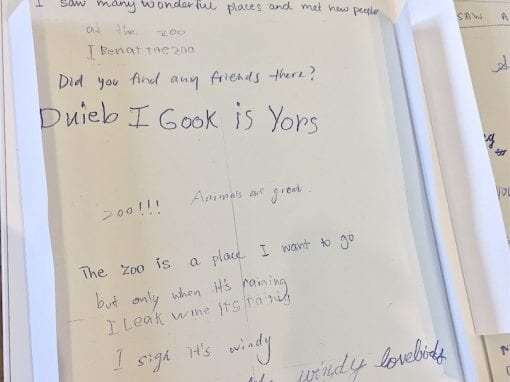 I saw many wonderful places and met new people
at the zoo
I BenatTHe zoo
Did you find any friends there?
Dnieb I Gook is Yors
zoo!!! Animals are great.
The zoo is a place I want to go
but only when it's raining
I Leak wine itS rainig
I sigh it's windy
windy lovebirds
SAW A